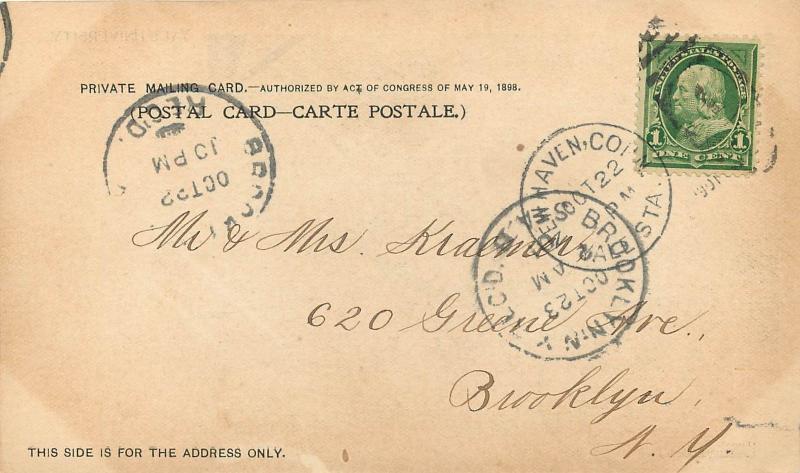 PRIVATE MAILING CARD.—AUTHORIZED BY ACT OF CONGRESS OF MAY 19, 1898.
(POSTAL CARD—CARTE POSTALE.)
UNITED STATES POSTAGE
1 1
ONE CENT
REC'D.
10 PM
OCT 22
NEW HAVEN, CONN
OCT 22
PM
STA.
BROOKLYN, N.Y.
REC'D.
AM
OCT 23
Mr & Mrs. Kraemer
620 Greene Ave.,
Brooklyn.
N. Y.
THIS SIDE IS FOR THE ADDRESS ONLY.